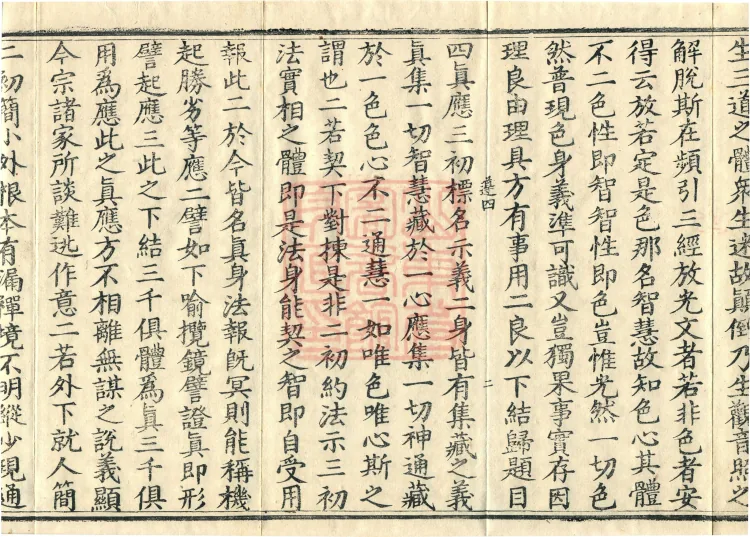 生三道之體衆生迷故顚倒乃生觀音照之
解脫斯在頻引三經放光文者若非色者安
得云放若定是色那名智慧故知色心其體
不二色性即智智性即色豈惟光然一切色
然普現色身義準可識又豈獨果事實存因
理良由理具方有事用二良以下結歸題目
遵四
二
四眞應三初標名示義二身皆有集藏之義
眞集一切智慧藏於一心應集一切神通藏
於一色色心不二通慧一如唯色唯心斯之
謂也二若契下對揀是非二初約法示三初
法實相之體即是法身能契之智即自受用
報此二於今皆名眞身法報旣冥則能稱機
起勝劣等應二譬如下喻攬鏡譬證眞即形
譬起應三此之下結三千俱體為眞三千俱
用為應此之眞應方不相離無謀之說義顯
今宗諸家所談難逃作意二若外下就人簡
二初簡小外根本有漏禪境不明縱少現通